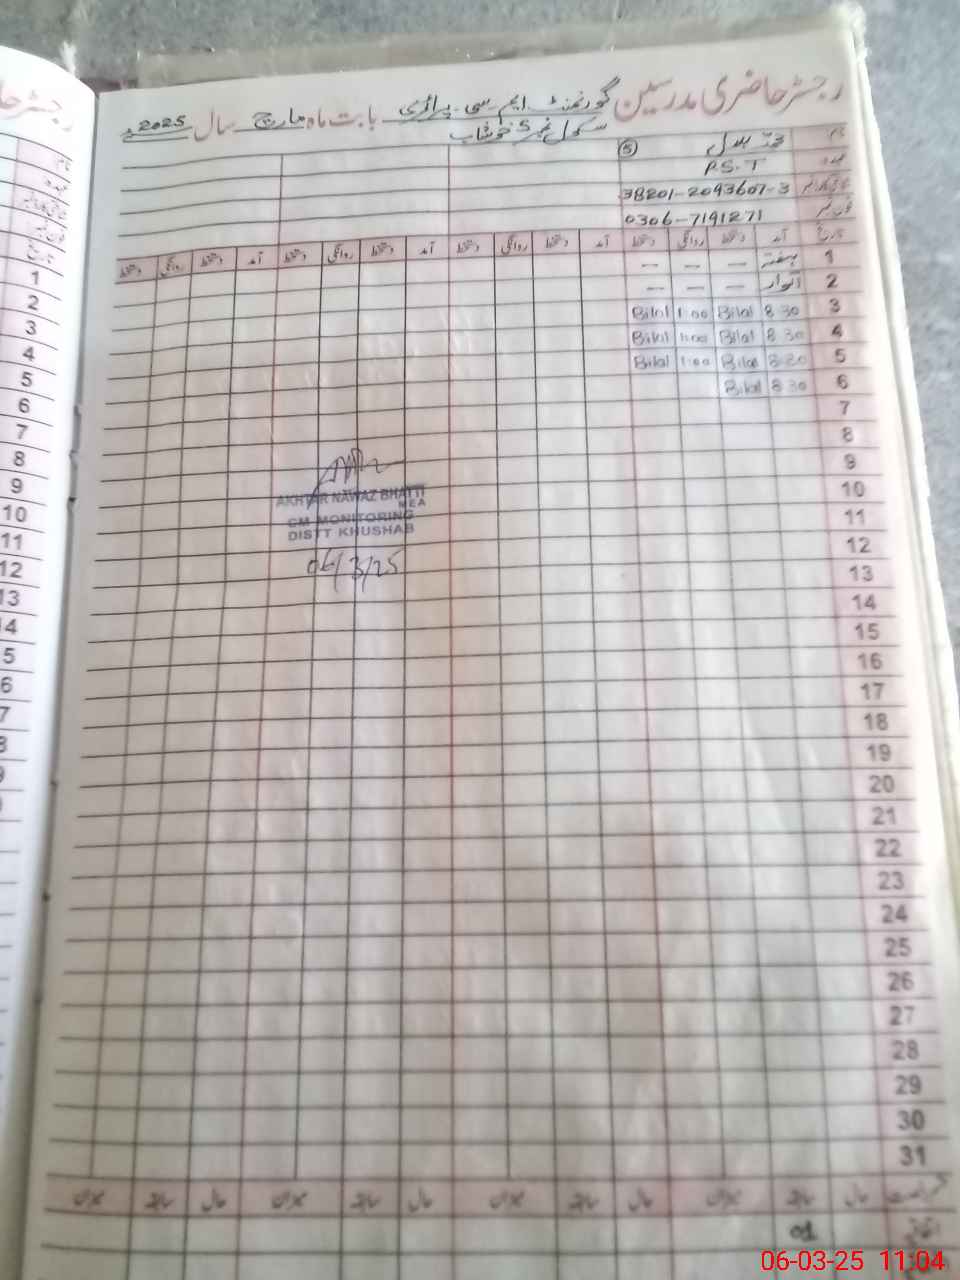 رجسٹر حاضری مدرسین گورنمنٹ ایم سی پرائمری بابت ماہ مارچ سال 2025ء
سکول نمبر 5 خوشاب
نام محمد بلال (5)
عہدہ P.S.T
شناختی کارڈ نمبر 38201-2093607-3
فون نمبر 0306-7191271
تاریخ آمد دستخط روانگی دستخط آمد دستخط روانگی دستخط آمد دستخط روانگی دستخط آمد دستخط روانگی دستخط
1 ہفتہ — — —
2 اتوار — — —
3 8 30 Bilal 1:00 Bilal
4 8 30 Bilal 1:00 Bilal
5 8 30 Bilal 1:00 Bilal
6 8 30 Bilal
7
8
9
10
11
12
13
14
15
16
17
18
19
20
21
22
23
24
25
26
27
28
29
30
31
AKHTAR NAWAZ BHATTI
MEA
CM MONITORING
DISTT KHUSHAB
06/3/25
حال سابقہ میزان حال سابقہ میزان حال سابقہ میزان حال سابقہ میزان
اتفاقیہ 01
رجسٹر حا
نام
عہدہ
شناختی کارڈ نمبر
فون نمبر
تاریخ
1
2
3
4
5
6
7
8
9
10
11
12
13
06-03-25 11:04